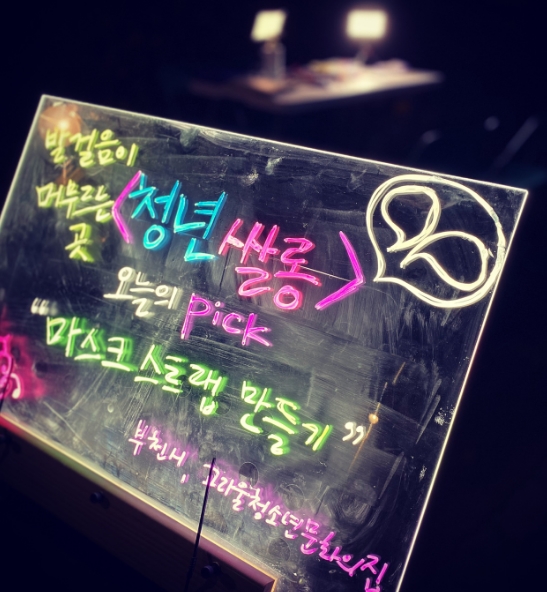 발걸음이
머무르는
곳
<청년싸롱>
오늘의 pick
“마스크 스트랩 만들기”
부천시, 고리울청소년문화의집